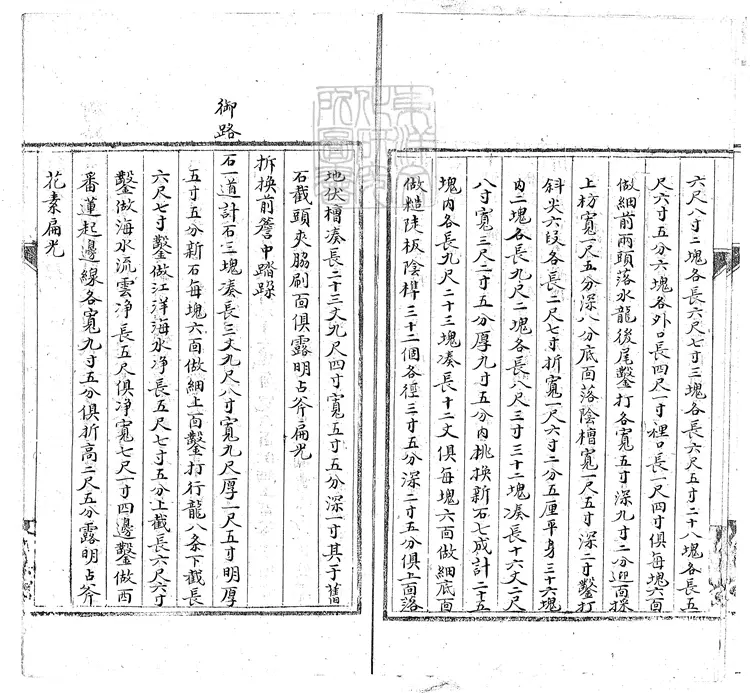 六尺八寸二塊各長六尺七寸三塊各長六尺五寸二十八塊各長五
尺六寸五分六塊各外口長四尺一寸裡口長一尺四寸俱每塊六面
做細前兩頭落水龍後尾鑿打各寬五寸深九寸二分迎面採
上枋寬一尺五分深八分底面落陰槽寬一尺五寸深二寸鑿打
斜尖六段各長二尺七寸折寬一尺六寸二分五厘平身三十六塊
內二塊各長九尺二塊各長八尺三寸三十二塊湊長十六丈二尺
八寸寬三尺二寸五分厚九寸五分內挑換新石七成計二十五
塊內各長九尺二十三塊湊長十二丈俱每塊六面做細底面
做糙陡板陰榫三十二個各徑三寸五分深二寸五分俱上面落
地伏槽湊長二十三丈九尺四寸寬五寸五分深一寸其于舊
石截頭夾脇刷面俱露明占斧扁光
拆換前簷中踏跺
御路
石一道計石三塊湊長三丈九尺八寸寬九尺厚一尺五寸明厚
五寸五分新石每塊六面做細上面鑿打行龍八条下截長
六尺七寸鑿做江洋海水净長五尺七寸五分上截長六尺六寸
鑿做海水流雲净長五尺俱净寬七尺一寸四邊鑿做西
番蓮起邊線各寬九寸五分俱折高二尺五分露明占斧
花素扁光